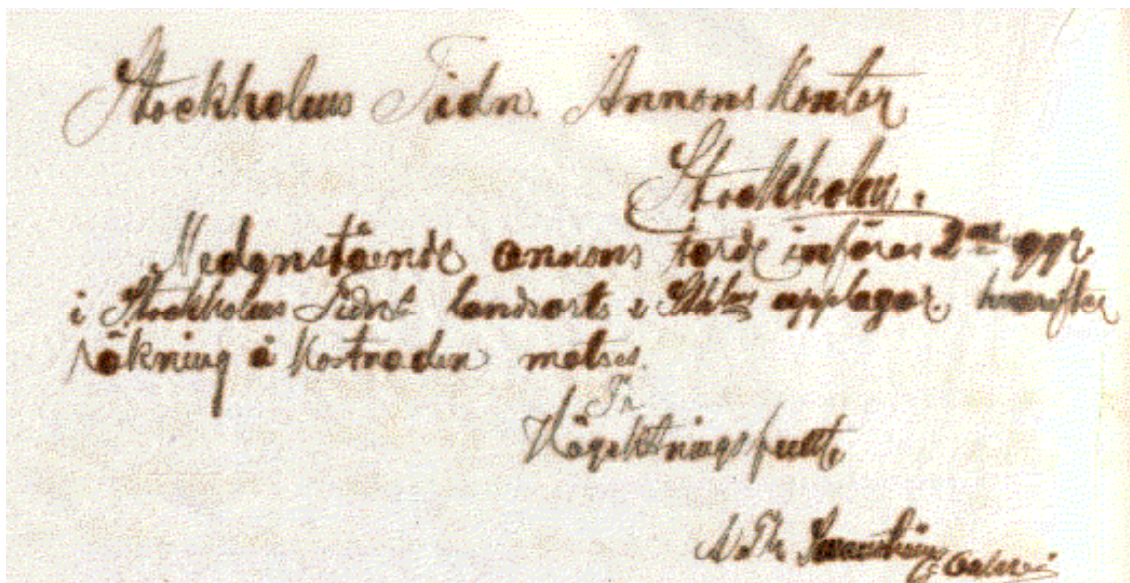 Stockholms Tidn. Annons Kontor
Stockholm.
Nedanstående annons torde införas 2ne ggr
i Stockholms Tidns landsorts & Sthlms upplagor, hvarefter
räkning å kostnaden motses.
Högaktningsfullt,